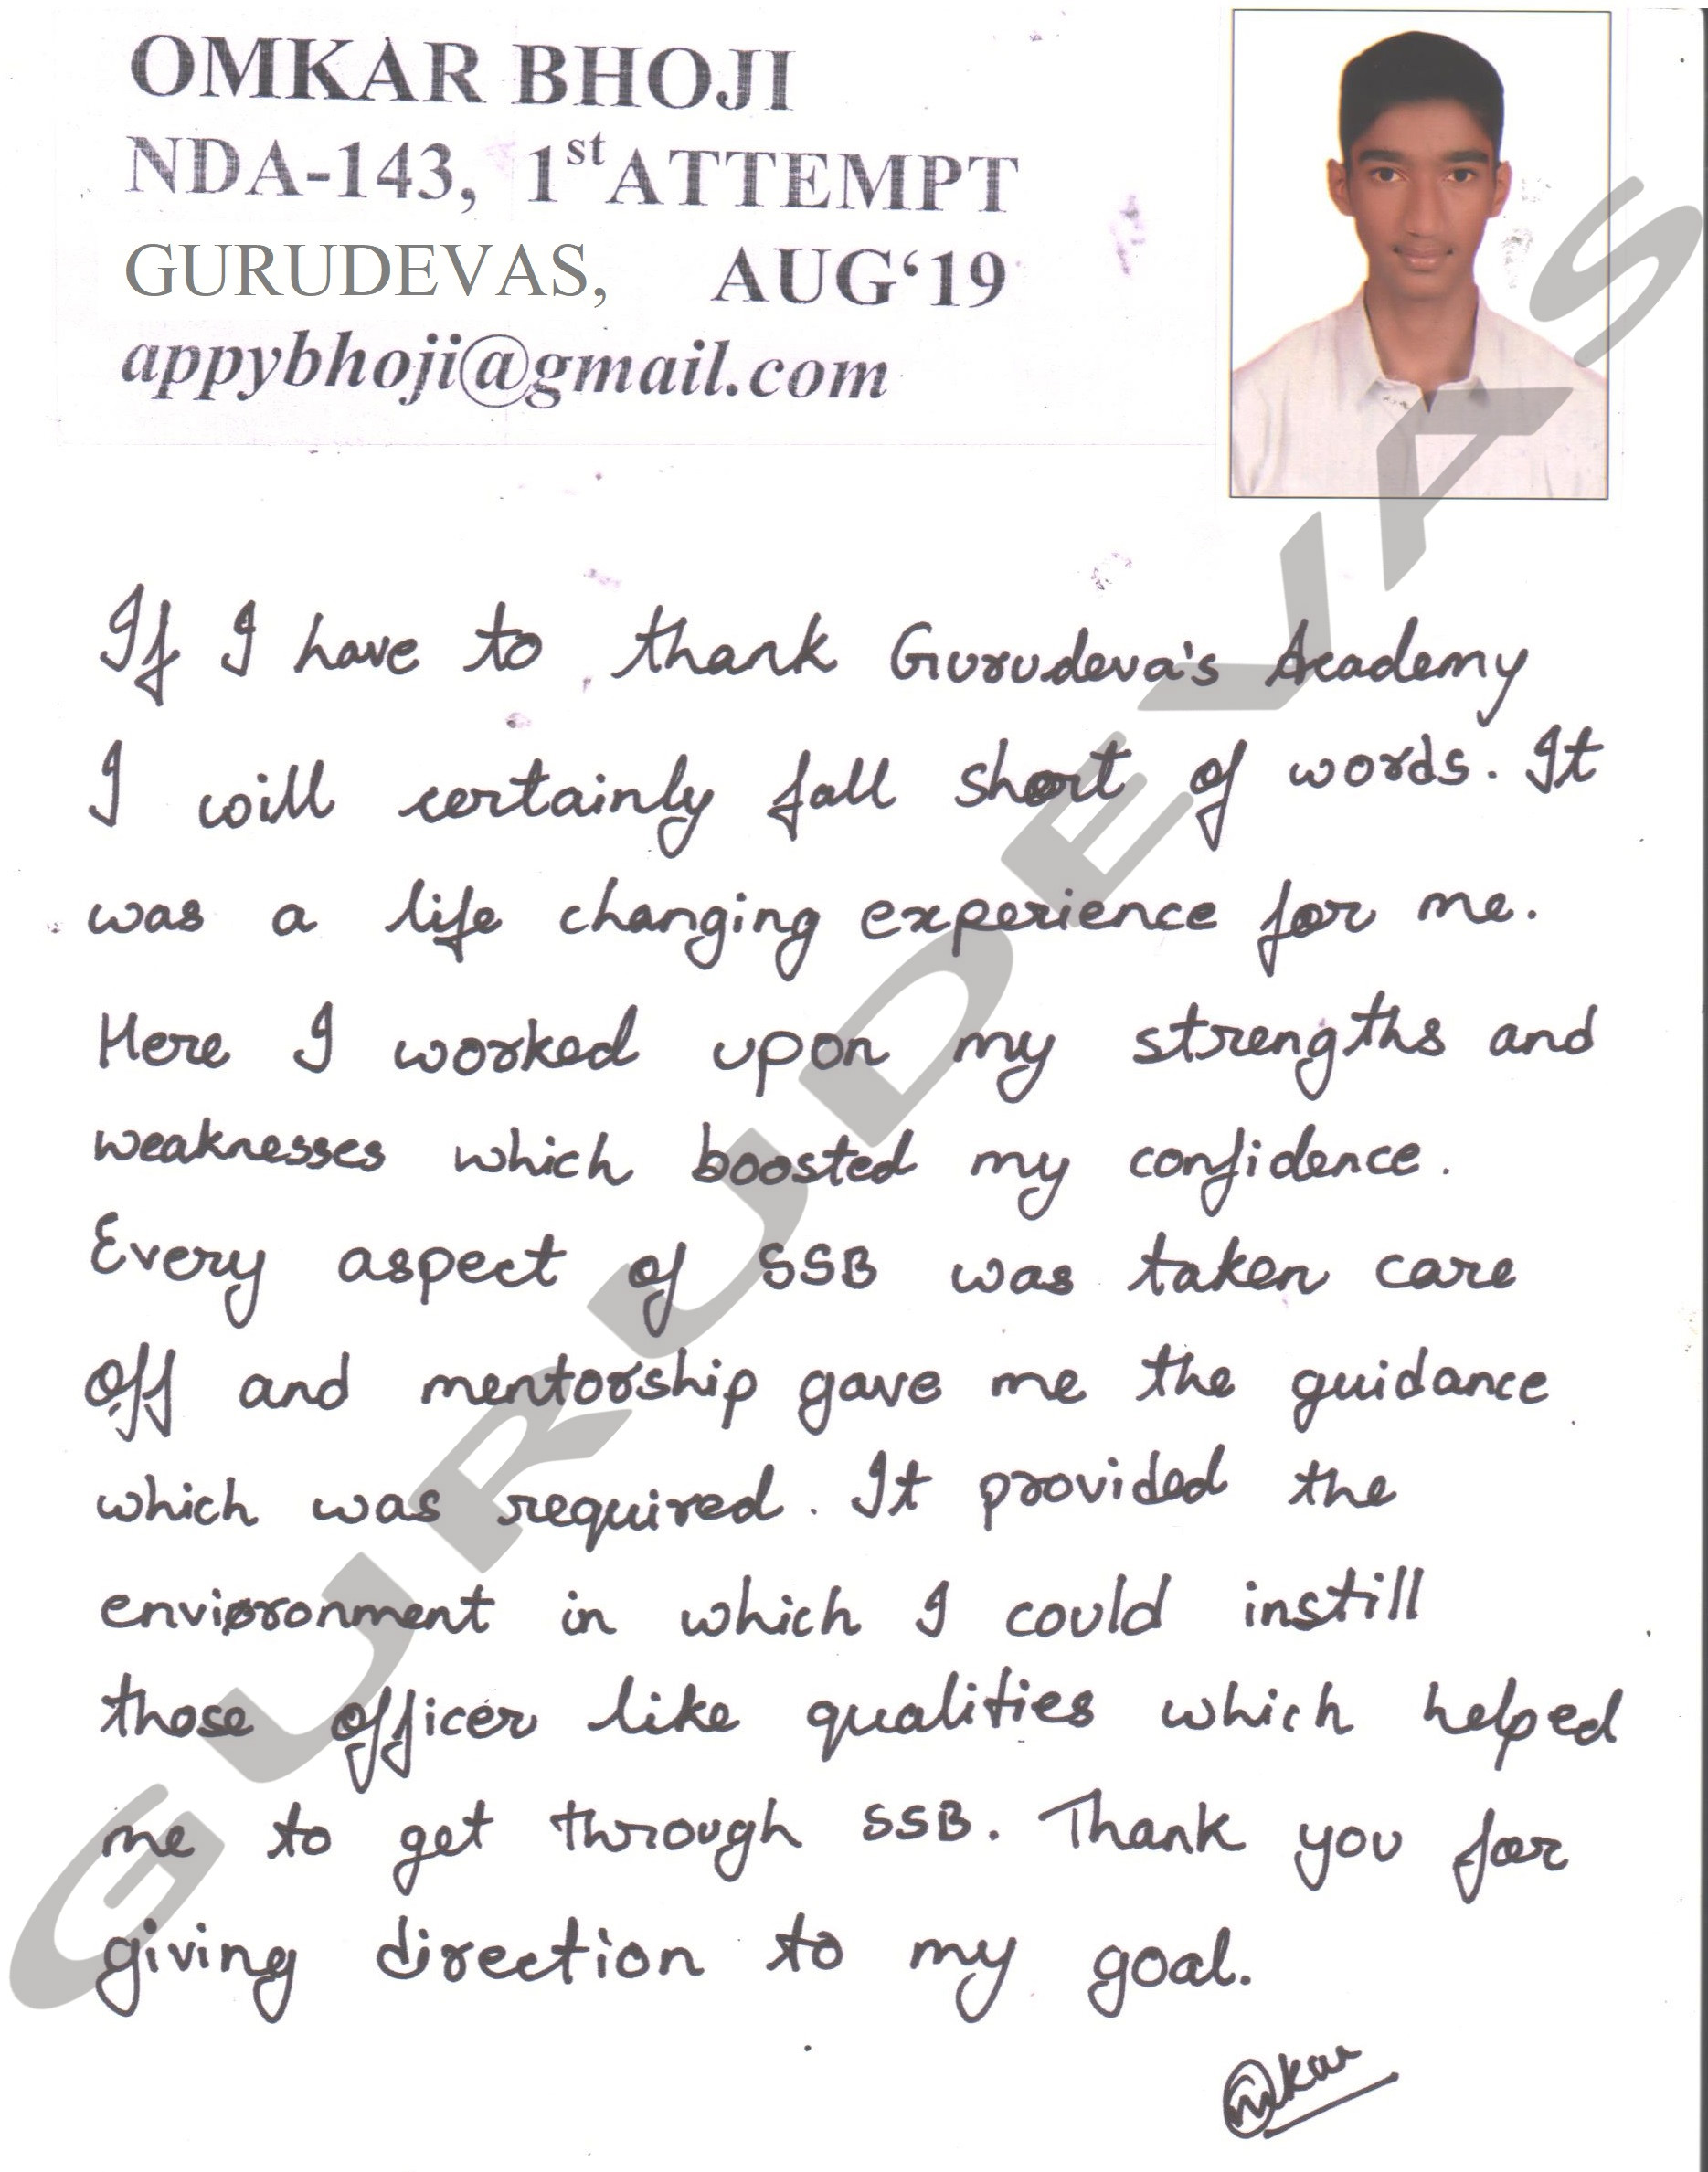 OMKAR BHOJI
NDA-143, 1st ATTEMPT
GURUDEVAS, AUG‘19
appybhoji@gmail.com
If I have to thank Gurudeva's Academy
I will certainly fall short of words. It
was a life changing experience for me.
Here I worked upon my strengths and
weaknesses which boosted my confidence.
Every aspect of SSB was taken care
off and mentorship gave me the guidance
which was required. It provided the
environment in which I could instill
those officer like qualities which helped
me to get through SSB. Thank you for
giving direction to my goal.
Omkar
GURUDEVAS